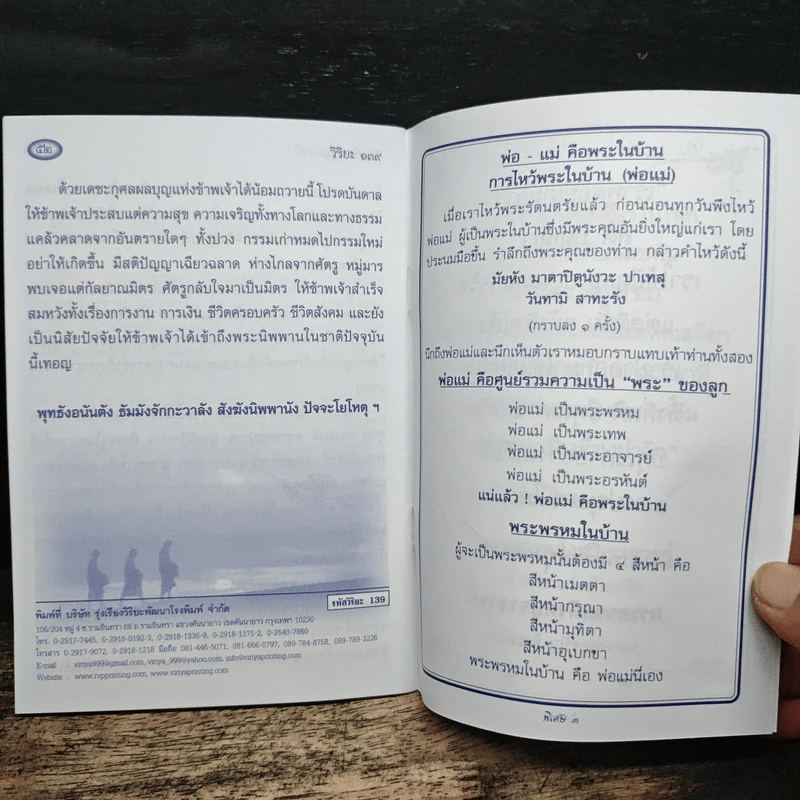 ๕๒
วิริยะ ๑๓๙
ด้วยเดชะกุศลผลบุญแห่งข้าพเจ้าได้น้อมถวายนี้ โปรดบันดาล
ให้ข้าพเจ้าประสบแต่ความสุข ความเจริญทั้งทางโลกและทางธรรม
แคล้วคลาดจากอันตรายใดๆ ทั้งปวง กรรมเก่าหมดไปกรรมใหม่
อย่าให้เกิดขึ้น มีสติปัญญาเฉียวฉลาด ห่างไกลจากศัตรู หมู่มาร
พบเจอแต่กัลยาณมิตร ศัตรูกลับใจมาเป็นมิตร ให้ข้าพเจ้าสำเร็จ
สมหวังทั้งเรื่องการงาน การเงิน ชีวิตครอบครัว ชีวิตสังคม และยัง
เป็นนิสัยปัจจัยให้ข้าพเจ้าได้เข้าถึงพระนิพพานในชาติปัจจุบัน
นี้เทอญ
พุทธังอนันตัง ธัมมังจักกะวาลัง สังฆังนิพพานัง ปัจจะโยโหตุ ฯ
พิมพ์ที่ บริษัท รุ่งเรืองวิริยะพัฒนาโรงพิมพ์ จำกัด
รหัสวิริยะ 139
106/204 หมู่ 4 ซ.รามอินทรา 68 ถ.รามอินทรา แขวงคันนายาว เขตคันนายาว กรุงเทพฯ 10230
โทร. 0-2517-7445, 0-2918-0192-3, 0-2918-1336-9, 0-2918-1171-2, 0-2540-7860
โทรสาร 0-2917-9072, 0-2918-1218 มือถือ 081-446-5071, 081-666-0797, 089-784-8758, 089-789-3226
E-mail : viriya999@gmail.com, viriya_999@yahoo.com, info@viriyaprinting.com
Website : www.rvpprinting.com, www.viriyaprinting.com
พ่อ - แม่ คือพระในบ้าน
การไหว้พระในบ้าน (พ่อแม่)
เมื่อเราไหว้พระรัตนตรัยแล้ว ก่อนนอนทุกวันพึงไหว้
พ่อแม่ ผู้เป็นพระในบ้านซึ่งมีพระคุณอันยิ่งใหญ่แก่เรา โดย
ประนมมือขึ้น รำลึกถึงพระคุณของท่าน กล่าวคำไหว้ดังนี้
มัยหัง มาตาปิตูนังวะ ปาเทสุ
วันทามิ สาทะรัง
(กราบลง ๑ ครั้ง)
นึกถึงพ่อแม่และนึกเห็นตัวเราหมอบกราบแทบเท้าท่านทั้งสอง
พ่อแม่ คือศูนย์รวมความเป็น “พระ” ของลูก
พ่อแม่ เป็นพระพรหม
พ่อแม่ เป็นพระเทพ
พ่อแม่ เป็นพระอาจารย์
พ่อแม่ เป็นพระอรหันต์
แน่แล้ว ! พ่อแม่ คือพระในบ้าน
พระพรหมในบ้าน
ผู้จะเป็นพระพรหมนั้นต้องมี ๔ สีหน้า คือ
สีหน้าเมตตา
สีหน้ากรุณา
สีหน้ามุทิตา
สีหน้าอุเบกขา
พระพรหมในบ้าน คือ พ่อแม่นี่เอง
พิเศษ ๓